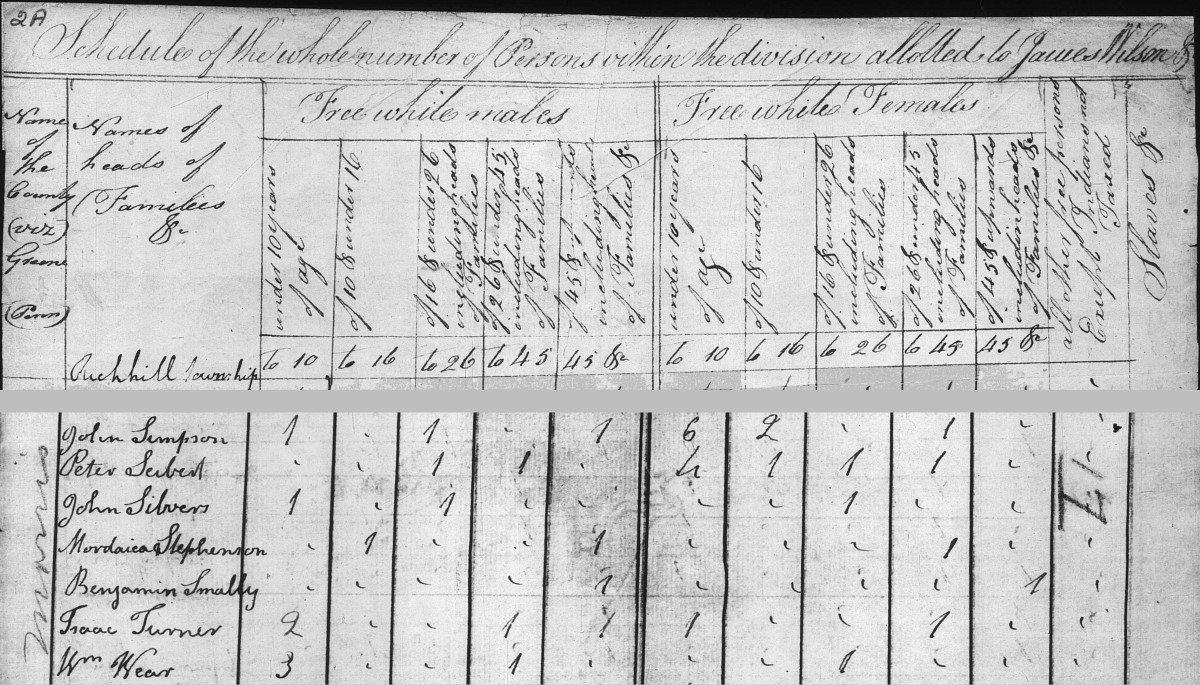 2A
Schedule of the whole number of Persons within the division allotted to James Wilson &c
Name of the County (viz) Greene (Penn)
Names of heads of Families &c
Free white males
under 10 years of age
of 10 & under 16
of 16 & under 26 including heads of Families
of 26 & under 45 including heads of Families
of 45 & upwards including heads of Families &c
Free white Females
under 10 years of age
of 10 & under 16
of 16 & under 26 including heads of Families
of 26 & under 45 including heads of Families
of 45 & upwards including heads of Families &c
all other free persons Except Indians not Taxed
Slaves &c
to 10 to 16 to 26 to 45 45 &c to 10 to 16 to 26 to 45 45 &c
Richhill Township
Morris
John Simpson 1 " 1 " 1 6 2 " 1 " "
Peter Seibert " " 1 1 " 4 1 1 1 " "
John Silvers 1 " 1 " " " " 1 " " "
Mordaica Stephenson " 1 " " 1 " " " 1 " "
Benjamin Smally " " " " 1 " " " " 1 "
Isaac Turner 2 " " 1 1 1 " " 1 " "
Wm Wear 3 " " 1 " " " 1 " " "